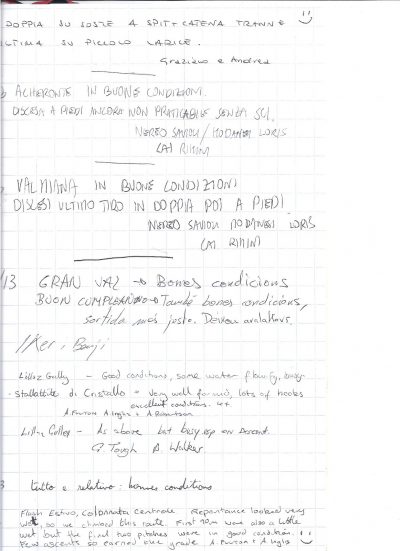 DOPPIA SU SOSTE A SPIT+CATENA TRANNE
ULTIMA SU PICCOLO LARICE.
Graziano e Andrea
ACHERONTE IN BUONE CONDIZIONI.
DISCESA A PIEDI ANCORA NON PRATICABILE SENZA SCI.
NEREO SAVIOLI / MODANESI LORIS
CAI RIMINI
VALMIANA IN BUONE CONDIZIONI
DISCESI ULTIMO TIRO IN DOPPIA POI A PIEDI.
NEREO SAVIOLI MODANESI LORIS
CAI RIMINI
/13 GRAN VAL → Bones condicions
BUON CUMPLEANNO → També bones condicions,
sortida més justa.
Iker i Benji
Lillaz Gully - Good conditions, some water flowing, busy.
- Stallattite di Cristallo - very well formed, lots of hooks
excellent conditions.
Lillaz Gulley - As above but busy esp on descent.
G. Tough B. Walker
tutto e relativo: bonnes conditions
Flash Estivo, Colonnata Centrale Repentance looked very
wet, so we climbed this route. First 10m were also a little
wet but the final two pitches were in good condition.
Few ascents so earned the grade.